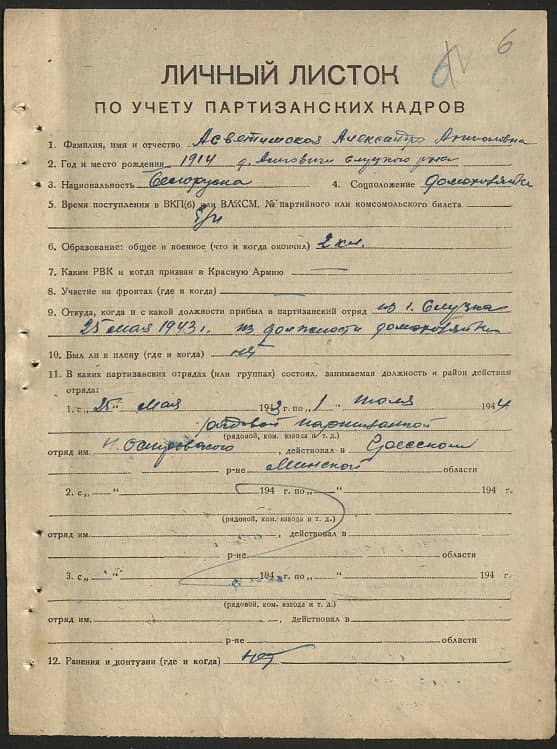 6
ЛИЧНЫЙ ЛИСТОК
ПО УЧЕТУ ПАРТИЗАНСКИХ КАДРОВ
1. Фамилия, имя и отчество Александра
2. Год и место рождения 1914 д. Слуцкого р-на
3. Национальность Белоруска 4. Соцположение домохозяйка
5. Время поступления в ВКП(б) или ВЛКСМ, № партийного или комсомольского билета
б/п
6. Образование: общее и военное (что и когда окончил) 2 кл.
7. Каким РВК и когда призван в Красную Армию —
8. Участие на фронтах (где и когда) —
9. Откуда, когда и с какой должности прибыл в партизанский отряд из г. Слуцка
25 мая 1943 г. из должности домохозяйки
10. Был ли в плену (где и когда) нет
11. В каких партизанских отрядах (или группах) состоял, занимаемая должность и район действия
отряда:
1. с „25“ мая 1943 г. по „1“ июля 1944
рядовой партизанкой
(рядовой, ком. взвода и т. д.)
отряд им. Н. Островского, действовал в
р-не Минской области
2. с „ “ 194 г. по „ “ 194 г.
(рядовой, ком. взвода и т. д.)
отряд им. , действовал в
р-не области
3. с „ “ 194 г. по „ “ 194 г.
(рядовой, ком. взвода и т. д.)
отряд им. , действовал в
р-не области
12. Ранения и контузии (где и когда) нет